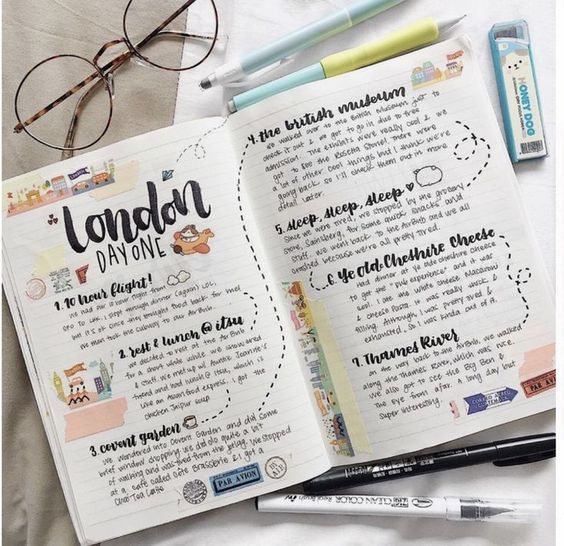 London
DAY ONE
1. 10 hour flight!
We had an 8 hour flight from
SFO to LHR. I slept through dinner (again) LOL,
but it's ok since they brought food back for me!
We then took the subway to our AirBnb.
2. rest & lunch @ itsu
We decided to rest at the AirBnb
for a short while while we showered
& stuff. We met up w/ Auntie Jeanne's
friend and had lunch @ itsu, which is
like an Asian food express. I got the
chicken Jaipur soup
3. covent garden
We wandered into Covent Garden and did some
brief window shopping. We did do quite a lot
of walking and was tired from the jetlag. We stopped
at a café called Côte Brasserie & I got a
Chai Tea Latte
PAR AVION
4. the british museum
We walked over to the British Museum just to
check it out & we got to go in due to free
admission. The exhibits were really cool & we
got to see the Roseta Stone! There were
a lot of other cool things but I think we're
going back, so I'll check them out in more
detail later.
5. sleep, sleep, sleep
Since we were tired, we stopped by the grocery
store, Sainsbury, for some quick snacks and
stuff. We went back to the AirBnb and we all
crashed because we're all pretty tired.
6. Ye Old Cheshire Cheese
Had dinner at ye olde cheshire cheese
to get the "pub experience" and it was
cool. I ate the white cheese Macaroni
& cheese Pasta. It was really thick &
filling. Although, I was pretty tired &
exhausted, so I was kinda out of it.
7. Thames River
On the way back to the AirBnb, we walked
along the Thames River, which was nice.
We also got to see the Big Ben &
the eye from afar. A long day but
Super interesting.
PAR AVION
HONEY DOG
CLEAN COLOR Real Brush